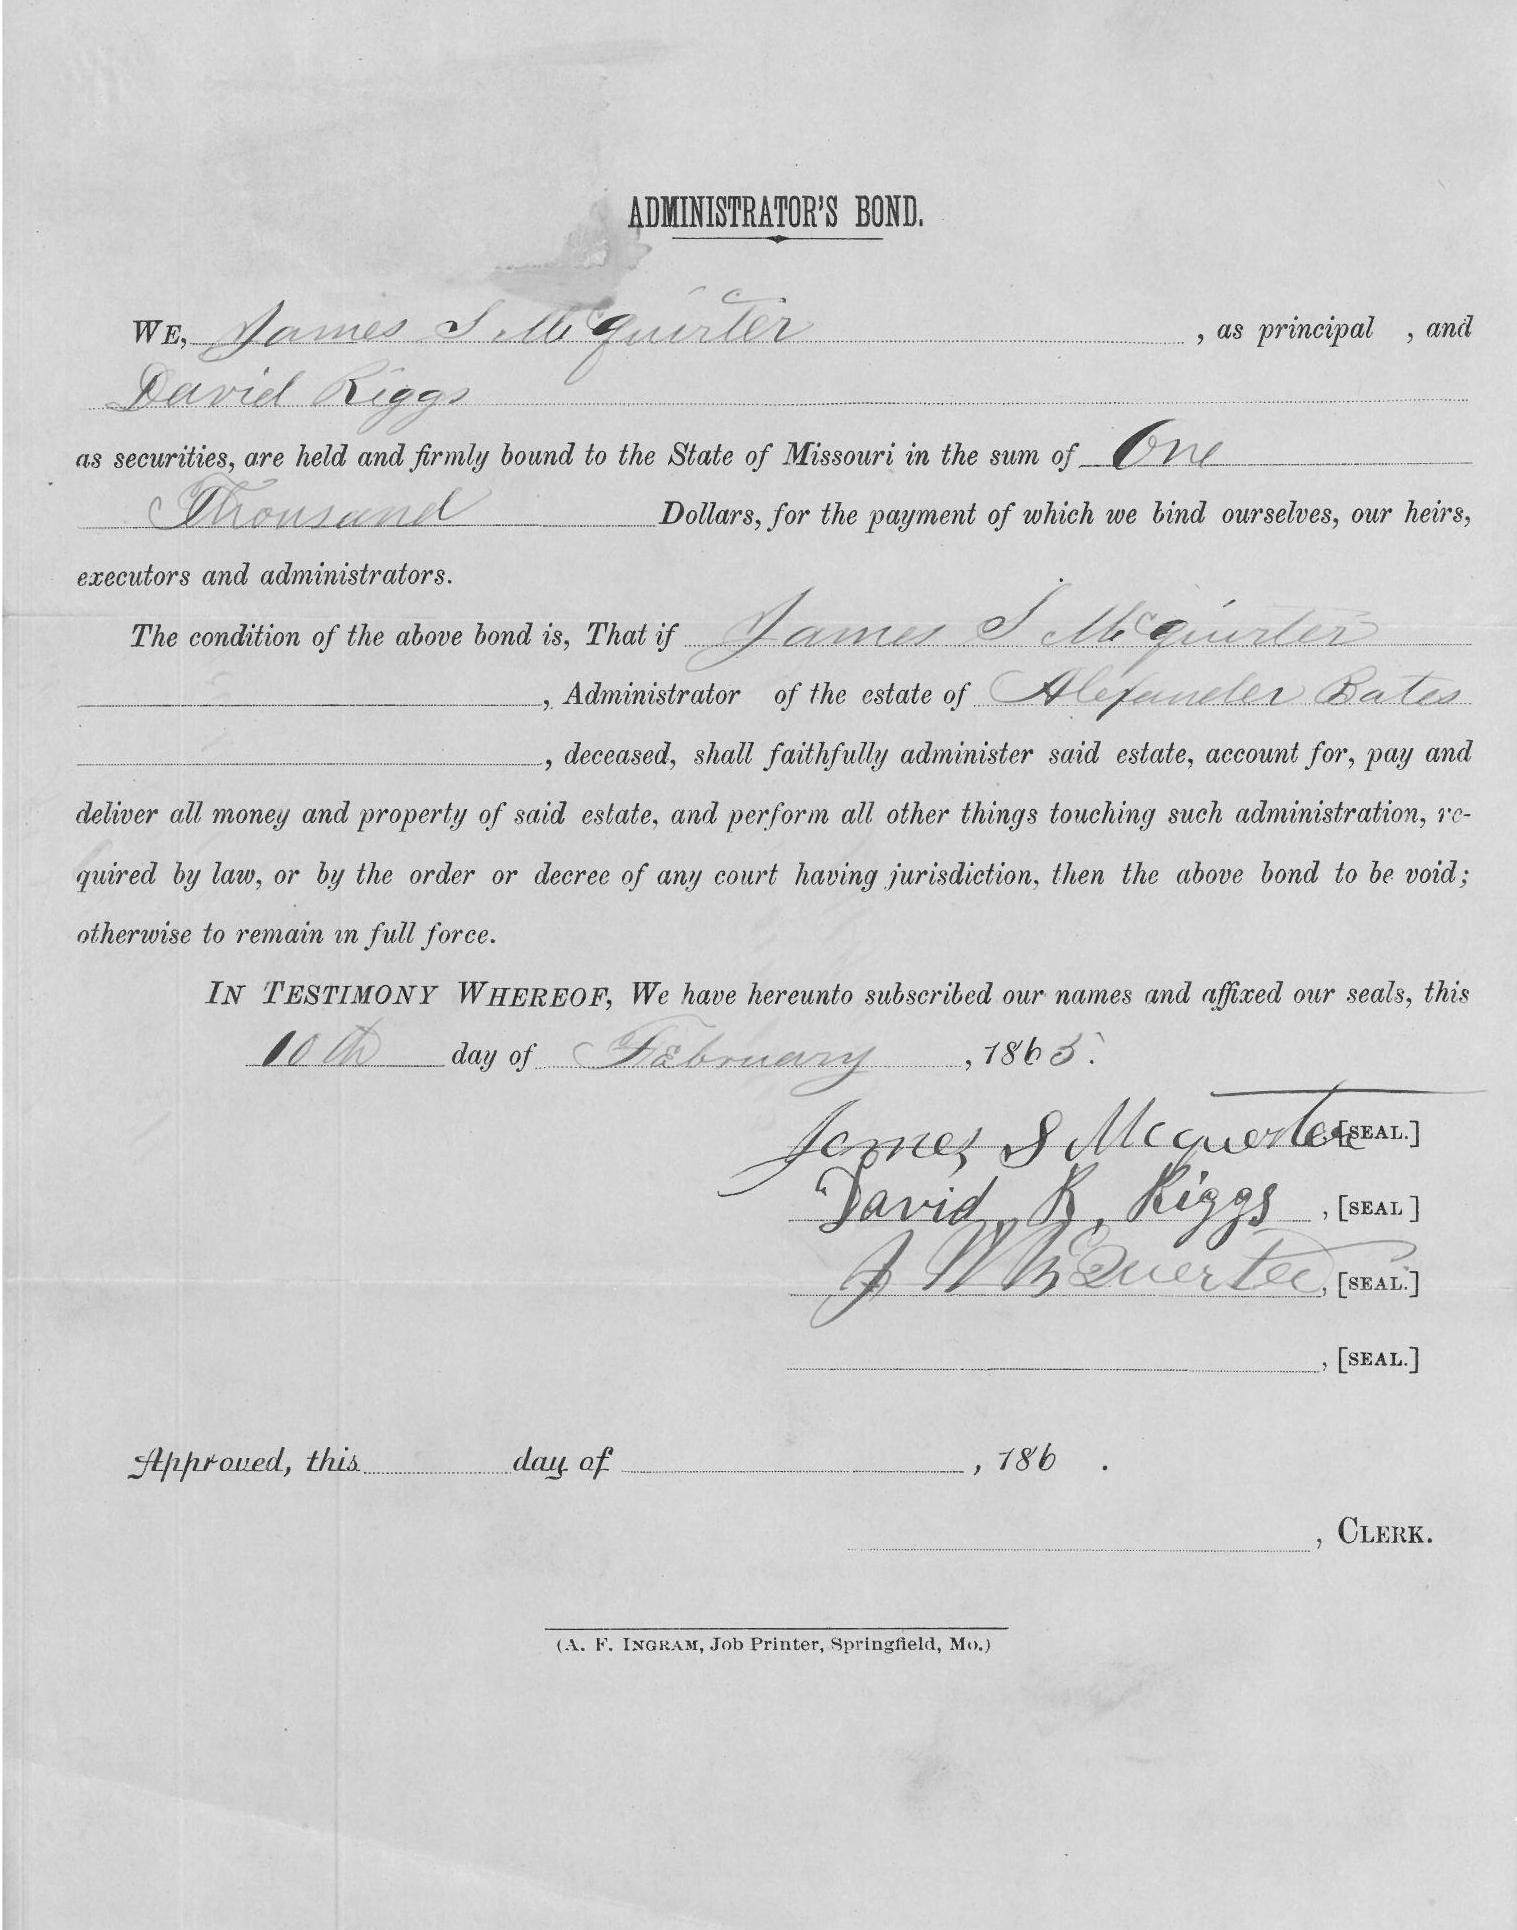 ADMINISTRATOR'S BOND.
WE, James S McQuirter , as principal , and
David Riggs
as securities, are held and firmly bound to the State of Missouri in the sum of One
Thousand Dollars, for the payment of which we bind ourselves, our heirs,
executors and administrators.
The condition of the above bond is, That if James S McQuirter
, Administrator of the estate of Alexander Bates
, deceased, shall faithfully administer said estate, account for, pay and
deliver all money and property of said estate, and perform all other things touching such administration, re-
quired by law, or by the order or decree of any court having jurisdiction, then the above bond to be void;
otherwise to remain in full force.
IN TESTIMONY WHEREOF, We have hereunto subscribed our names and affixed our seals, this
10th day of February , 1865.
James S Mcquerter [SEAL.]
David R. Riggs , [SEAL ]
J W McQuerter , [SEAL.]
, [SEAL.]
Approved, this day of , 186 .
, CLERK.
(A. F. INGRAM, Job Printer, Springfield, Mo.)